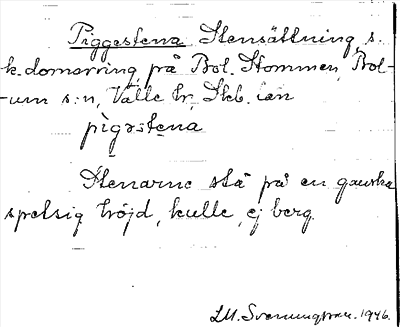 Piggestena Stensättning, s.
k. domarring, på Bol. Stommen, Bol-
-um s:n, Valle hr, Skb. län
pigəstena
Stenarne stå på en ganska
spetsig höjd, kulle, ej berg.
LM. Svenungsson. 1946.